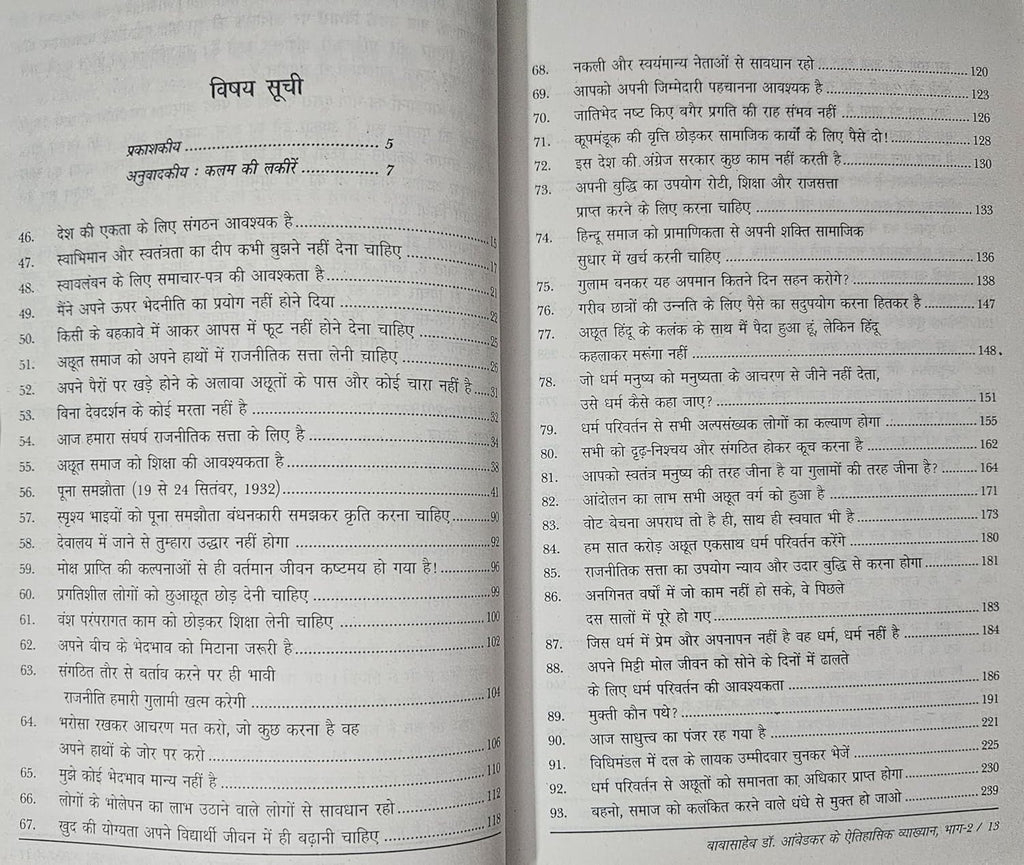 विषय सूची
प्रकाशकीय ........................................ 5
अनुवादकीय : कलम की लकीरें .................. 7
46. देश की एकता के लिए संगठन आवश्यक है ........ 15
47. स्वाभिमान और स्वतंत्रता का दीप कभी बुझने नहीं देना चाहिए ........ 17
48. स्वावलंबन के लिए समाचार-पत्र की आवश्कता है ........ 21
49. मैंने अपने ऊपर भेदनीति का प्रयोग नहीं होने दिया ........ 22
50. किसी के बहकावे में आकर आपस में फूट नहीं होने देना चाहिए ........ 25
51. अछूत समाज को अपने हाथों में राजनीतिक सत्ता लेनी चाहिए ........ 26
52. अपने पैरों पर खड़े होने के अलावा अछूतों के पास और कोई चारा नहीं है ..... 31
53. बिना देवदर्शन के कोई मरता नहीं है ........ 32
54. आज हमारा संघर्ष राजनीतिक सत्ता के लिए है ........ 34
55. अछूत समाज को शिक्षा की आवश्यकता है ........ 38
56. पूना समझौता (19 से 24 सितंबर, 1932) ........ 41
57. स्पृश्य भाइयों को पूना समझौता बंधनकारी समझकर कृति करना चाहिए ........ 90
58. देवालय में जाने से तुम्हारा उद्धार नहीं होगा ........ 92
59. मोक्ष प्राप्ति की कल्पनाओं से ही वर्तमान जीवन कष्टमय हो गया है! ........ 96
60. प्रगतिशील लोगों को छुआछूत छोड़ देनी चाहिए ........ 99
61. वंश परंपरागत काम को छोड़कर शिक्षा लेनी चाहिए ........ 100
62. अपने बीच के भेदभाव को मिटाना जरूरी है ........ 102
63. संगठित तौर से बर्ताव करने पर ही भावी
राजनीति हमारी गुलामी खत्म करेगी ........ 104
64. भरोसा रखकर आचरण मत करो, जो कुछ करना है वह
अपने हाथों के जोर पर करो ........ 106
65. मुझे कोई भेदभाव मान्य नहीं है ........ 110
66. लोगों के भोलेपन का लाभ उठाने वाले लोगों से सावधान रहो ........ 112
67. खुद की योग्यता अपने विद्यार्थी जीवन में ही बढ़ानी चाहिए ........ 118
68. नकली और स्वयंमान्य नेताओं से सावधान रहो ........ 120
69. आपको अपनी जिम्मेदारी पहचानना आवश्यक है ........ 123
70. जातिभेद नष्ट किए बगैर प्रगति की राह संभव नहीं ........ 126
71. कूपमंडूक की वृत्ति छोड़कर सामाजिक कार्यों के लिए पैसे दो! ........ 128
72. इस देश की अंग्रेज सरकार कुछ काम नहीं करती है ........ 130
73. अपनी बुद्धि का उपयोग रोटी, शिक्षा और राजसत्ता
प्राप्त करने के लिए करना चाहिए ........ 133
74. हिन्दू समाज को प्रामाणिकता से अपनी शक्ति सामाजिक
सुधार में खर्च करनी चाहिए ........ 136
75. गुलाम बनकर यह अपमान कितने दिन सहन करोगे? ........ 138
76. गरीब छात्रों की उन्नति के लिए पैसे का सदुपयोग करना हितकर है ........ 147
77. अछूत हिंदू के कलंक के साथ मैं पैदा हुआ हूं, लेकिन हिंदू
कहलाकर मरूंगा नहीं ........ 148
78. जो धर्म मनुष्य को मनुष्यता के आचरण से जीने नहीं देता,
उसे धर्म कैसे कहा जाए? ........ 151
79. धर्म परिवर्तन से सभी अल्पसंख्यक लोगों का कल्याण होगा ........ 155
80. सभी को दृढ़-निश्चय और संगठित होकर कूच करना है ........ 162
81. आपको स्वतंत्र मनुष्य की तरह जीना है या गुलामों की तरह जीना है? ........ 164
82. आंदोलन का लाभ सभी अछूत वर्ग को हुआ है ........ 171
83. वोट बेचना अपराध तो है ही, साथ ही स्वघात भी है ........ 173
84. हम सात करोड़ अछूत एकसाथ धर्म परिवर्तन करेंगे ........ 180
85. राजनीतिक सत्ता का उपयोग न्याय और उदार बुद्धि से करना होगा ........ 181
86. अनगिनत वर्षों में जो काम नहीं हो सके, वे पिछले
दस सालों में पूरे हो गए ........ 183
87. जिस धर्म में प्रेम और अपनापन नहीं है वह धर्म, धर्म नहीं है ........ 184
88. अपने मिट्टी मोल जीवन को सोने के दिनों में ढालते
के लिए धर्म परिवर्तन की आवश्यकता ........ 186
89. मुक्ती कौन पथे? ........ 191
90. आज साधुत्त्व का पंजर रह गया है ........ 221
91. विधिमंडल में दल के लायक उम्मीदवार चुनकर भेजें ........ 225
92. धर्म परिवर्तन से अछूतों को समानता का अधिकार प्राप्त होगा ........ 230
93. बहनो, समाज को कलंकित करने वाले धंधे से मुक्त हो जाओ ........ 239
बाबासाहेब डॉ. आंबेडकर के ऐतिहासिक व्याख्यान, भाग-2 / 13